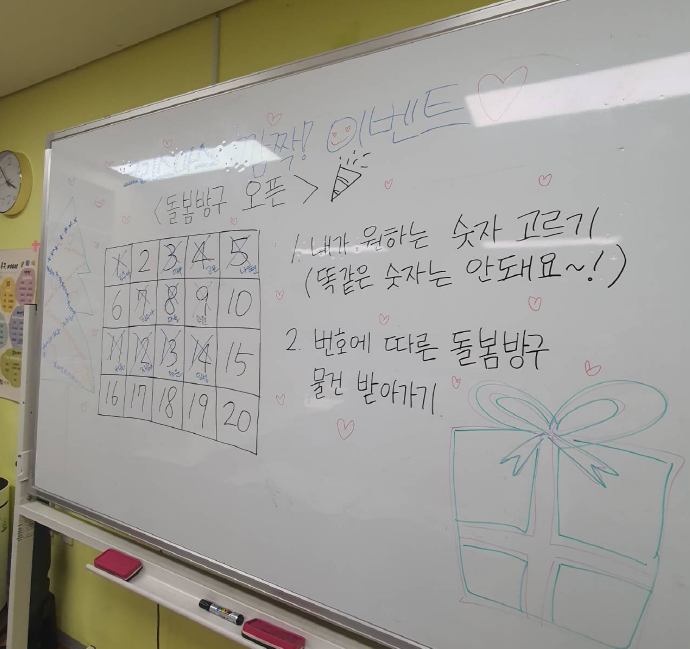 깜짝! 이벤트
<돌봄방구 오픈>
1 2 3 4 5
6 7 8 9 10
11 12 13 14 15
16 17 18 19 20
1. 내가 원하는 숫자 고르기
(똑같은 숫자는 안돼요~!)
2. 번호에 따른 돌봄방구
물건 받아가기.